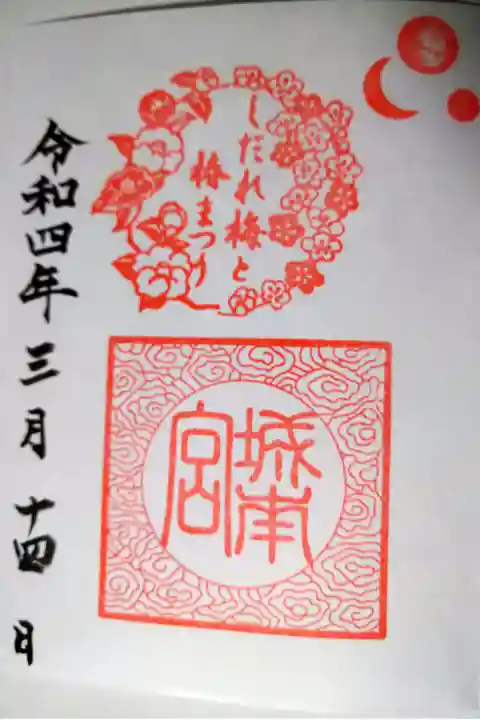 しだれ梅と
椿まつり
城南宮
令和四年三月十四日